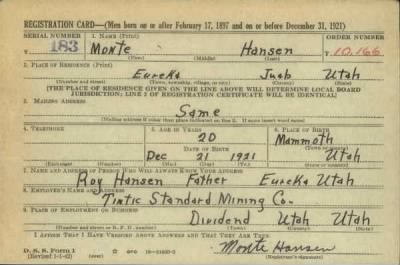 REGISTRATION CARD—(Men born on or after February 17, 1897 and on or before December 31, 1921)
SERIAL NUMBER 1. NAME (Print) ORDER NUMBER
183 Monte Hansen T 10,166
(First) (Middle) (Last)
2. PLACE OF RESIDENCE (Print)
Eureka Juab Utah
(Number and street) (Town, township, village, or city) (County) (State)
[THE PLACE OF RESIDENCE GIVEN ON THE LINE ABOVE WILL DETERMINE LOCAL BOARD
JURISDICTION; LINE 2 OF REGISTRATION CERTIFICATE WILL BE IDENTICAL]
3. MAILING ADDRESS
Same
[Mailing address if other than place indicated on line 2. If same insert word same]
4. TELEPHONE 5. AGE IN YEARS 6. PLACE OF BIRTH
20 Mammoth
DATE OF BIRTH (Town or county)
Dec 21 1921 Utah
(Exchange) (Number) (Mo.) (Day) (Yr.) (State or country)
7. NAME AND ADDRESS OF PERSON WHO WILL ALWAYS KNOW YOUR ADDRESS
Roy Hansen Father Eureka Utah
8. EMPLOYER'S NAME AND ADDRESS
Tintic Standard Mining Co.
9. PLACE OF EMPLOYMENT OR BUSINESS
Dividend Utah Utah
(Number and street or R. F. D. number) (Town) (County) (State)
I AFFIRM THAT I HAVE VERIFIED ABOVE ANSWERS AND THAT THEY ARE TRUE.
D. S. S. Form 1
(Revised 1-1-42) (over) Monte Hansen
(Registrant's signature)